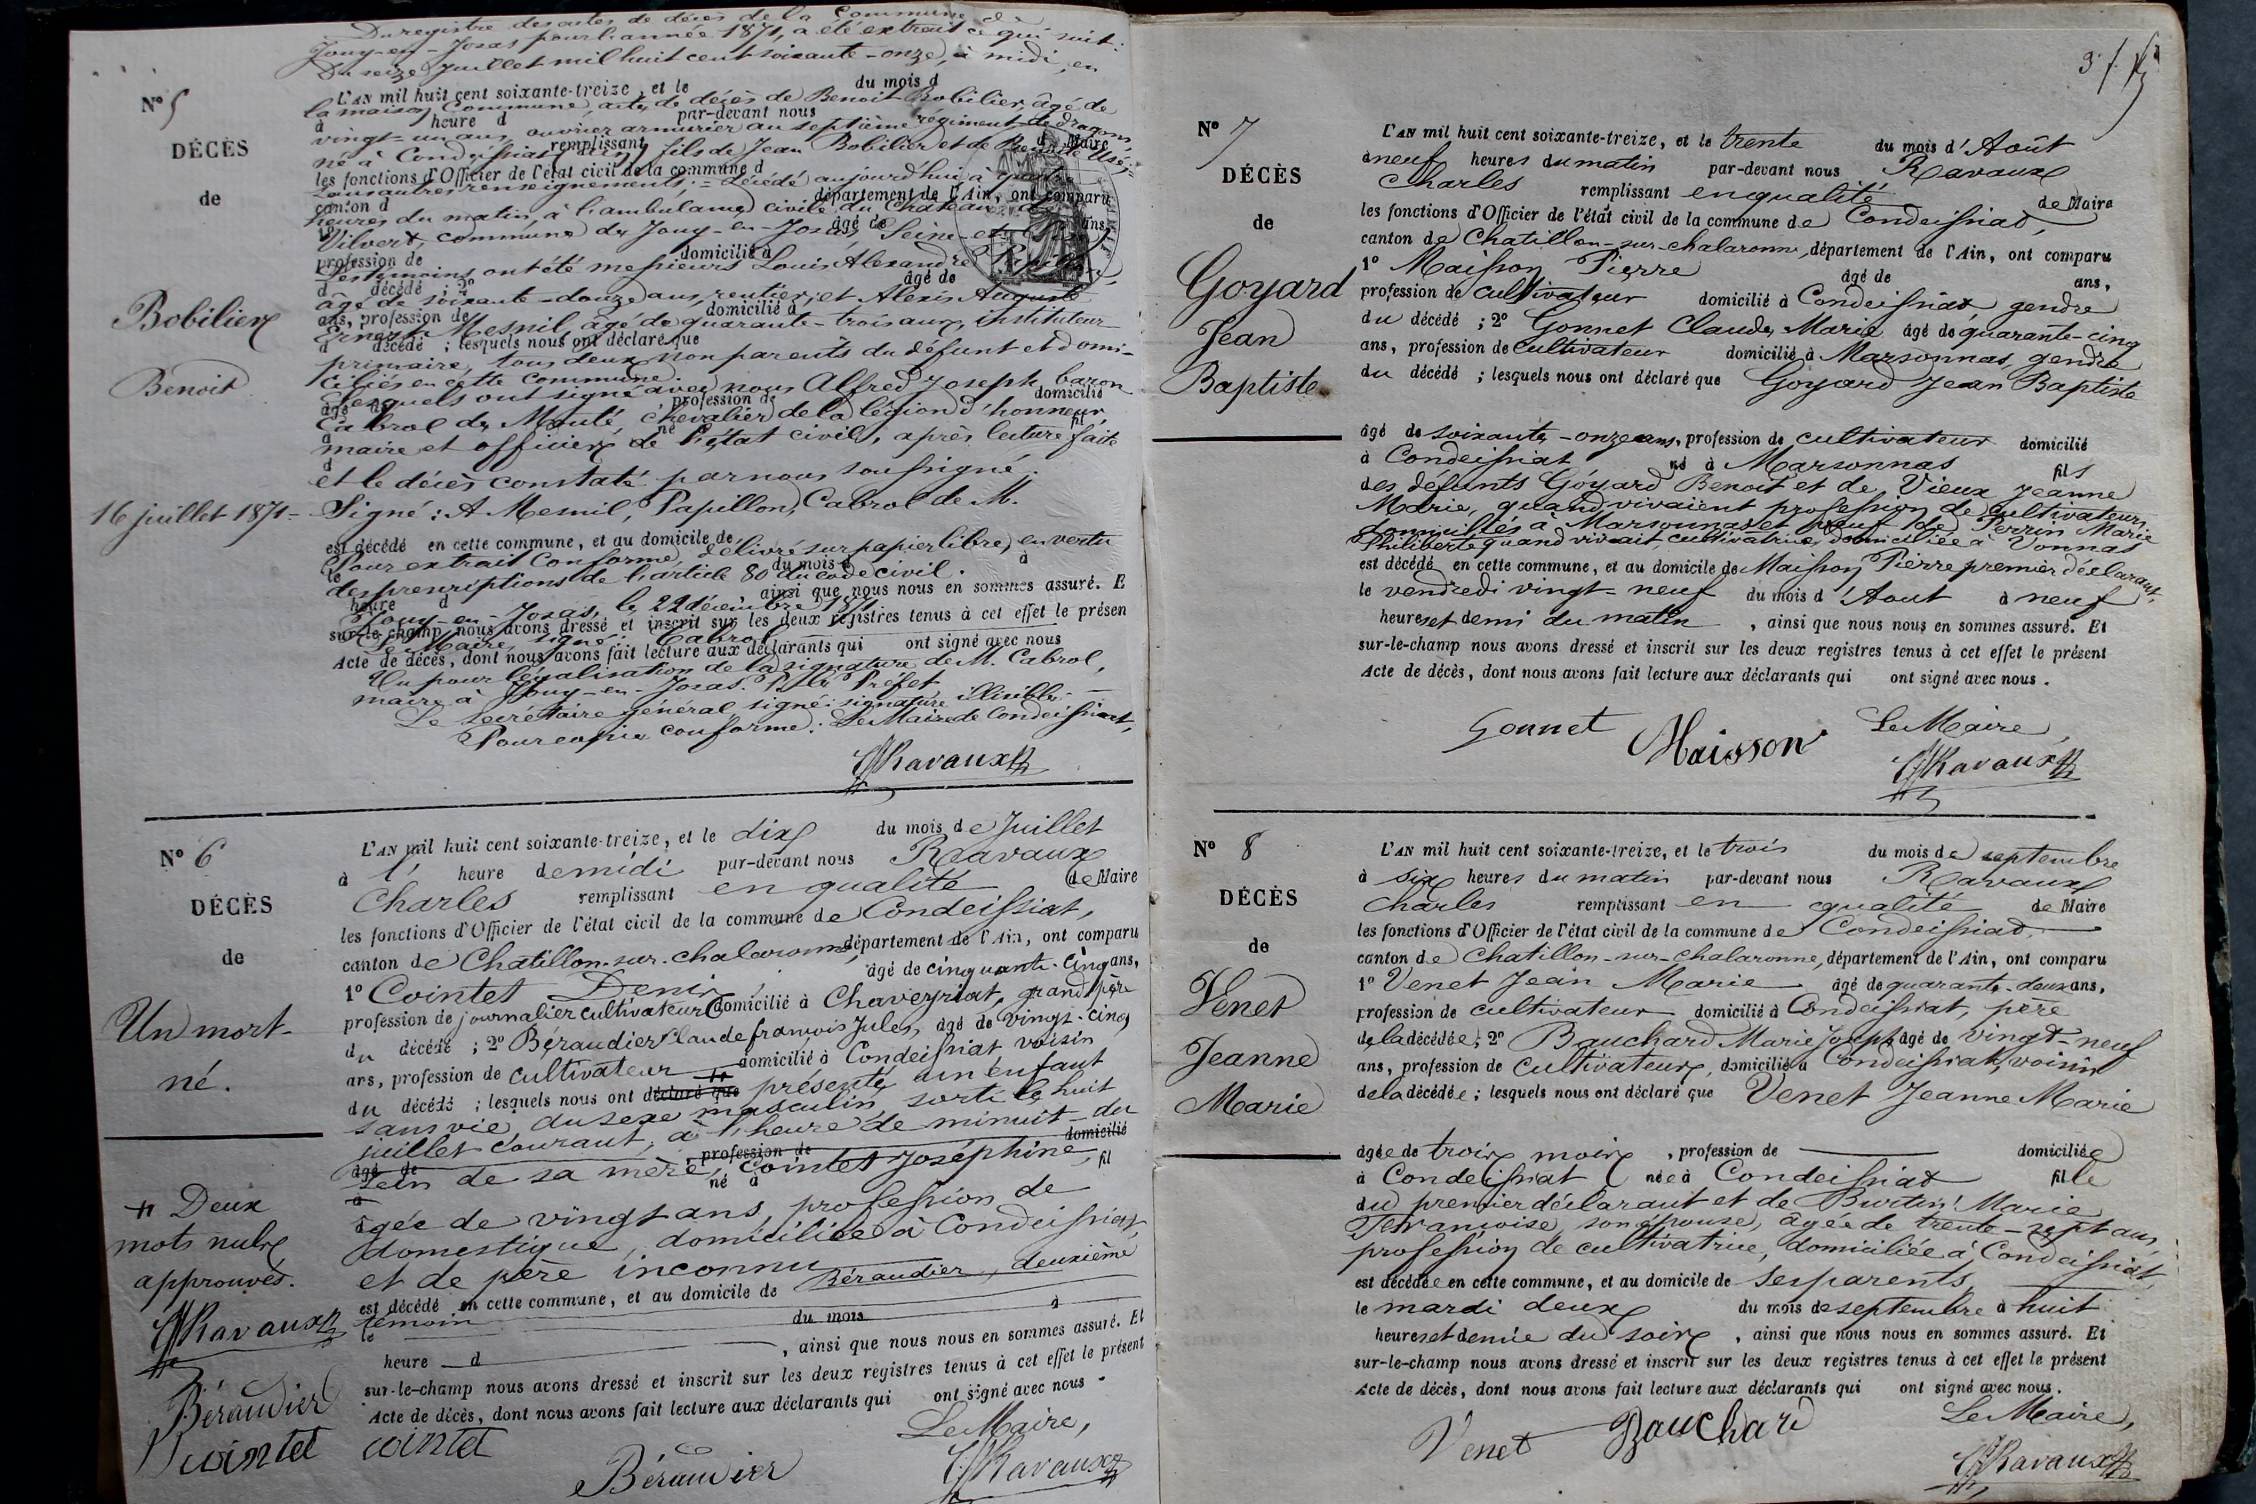 Du registre des actes de décès de la Commune de
Jouy-en-Josas pour l'année 1871, a été extrait ce qui suit:
Du seize Juillet mil huit cent soixante-onze, à midi, en
N° 5
L'AN mil huit cent soixante-treize, et le du mois d
la maison Commune, acte de décès de Benoit Bobilier, âgé de
à heure d par-devant nous
DÉCÈS
vingt-un ans, ouvrier armurier au septième régiment de dragons,
remplissant d Maire
né à Condeissiat, fils de Jean Bobilier et de
de
les fonctions d'Officier de l'état civil de la commune d
autres renseignements. = décédé aujourd'hui à quatre
canton d département de l'Ain, ont comparu
heures du matin, à l'ambulance civile du Château de
1° âgé de ans,
Vilvert, commune de Jouy-en-Josas, Seine-et-
profession de domicilié à
Les témoins ont été messieurs Louis Alexandre
d décédé ; 2° âgé de
âgé de soixante-douze ans, rentier, et Alexis Auguste
Bobilier
ans, profession de domicilié à
Ernest Mesnil, âgé de quarante-trois ans, instituteur
d décédé ; lesquels nous ont déclaré que
primaire, tous deux non parents du défunt et domi-
Benoit
ciliés en cette commune.
Lesquels ont signé avec nous Alfred Joseph baron
âgé de profession de domicilié
Cabrol de Mouté, chevalier de la légion d'honneur,
à né à fil
maire et officier de l'état civil, après lecture faite
d
et le décès constaté par nous soussigné.
16 juillet 1871 =
Signé: A Mesnil, Papillon, Cabrol de M.
est décédé en cette commune, et au domicile de
Pour extrait conforme, délivré sur papier libre, en vertu
le du mois d à
des prescriptions de l'article 80 du code civil.
heure d , ainsi que nous nous en sommes assuré. E
Jouy-en-Josas, le 22 décembre 1871
sur-le-champ nous avons dressé et inscrit sur les deux registres tenus à cet effet le présen
Le Maire, signé: Cabrol
Acte de décès, dont nous avons fait lecture aux déclarants qui ont signé avec nous
Vu pour légalisation de la signature de M. Cabrol,
maire à Jouy-en-Josas. P. le Préfet
Le secrétaire général signé: signature illisible. —
Pour copie conforme: Le Maire de Condeissiat,
Ravaux
N° 6
L'AN mil huit cent soixante-treize, et le dix du mois de Juillet
à l' heure de midi par-devant nous Ravaux
DÉCÈS
Charles remplissant en qualité de Maire
les fonctions d'Officier de l'état civil de la commune de Condeissiat,
de
canton de Chatillon-sur-chalaronne, département de l'Ain, ont comparu
1° Cointet Denis âgé de cinquante-cinq ans,
profession de journalier cultivateur domicilié à Chaveyriat, grand père
Un mort-
du décédé ; 2° Béraudier Claude françois Jules, âgé de vingt-cinq
ans, profession de cultivateur domicilié à Condeissiat voisin
né.
du décédé ; lesquels nous ont déclaré que présenté un enfant
sans vie, du sexe masculin sorti le huit
juillet courant, à l'heure de minuit - du
âgé de profession de domicilié
sein de sa mère, Cointet Joséphine,
à né à fil
Deux
âgée de vingt ans, profession de
mots nuls
domestique, domiciliée à Condeissiat,
approuvés.
et de père inconnu
est décédé en cette commune, et au domicile de Béraudier, deuxième
Ravaux
témoin
le du mois à
heure d , ainsi que nous nous en sommes assuré. Et
sur-le-champ nous avons dressé et inscrit sur les deux registres tenus à cet effet le présent
Béraudier
Acte de décès, dont nous avons fait lecture aux déclarants qui ont signé avec nous.
Cointet
Cointet
Béraudier
Le Maire,
Ravaux
N° 7
L'AN mil huit cent soixante-treize, et le trente du mois d'Août
à neuf heures du matin par-devant nous Ravaux
DÉCÈS
Charles remplissant en qualité de Maire
les fonctions d'Officier de l'état civil de la commune de Condeissiat,
de
canton de Chatillon-sur-chalaronne, département de l'Ain, ont comparu
1° Maisson Pierre âgé de ans,
Goyard
profession de cultivateur domicilié à Condeissiat, gendre
du décédé ; 2° Gonnet Claude, Marie âgé de quarante-cinq
Jean
ans, profession de cultivateur domicilié à Marsonnas, gendre
Baptiste
du décédé ; lesquels nous ont déclaré que Goyard Jean Baptiste
âgé de soixante-onze ans, profession de cultivateur domicilié
à Condeissiat né à Marsonnas fils
des défunts Goyard Benoit et de Vieux Jeanne
Marie, quand vivaient profession de cultivateurs
domiciliés à Marsonnas et veuf de Perrin Marie
Philiberte quand vivait, cultivatrice, domiciliée à Vonnas
est décédé en cette commune, et au domicile de Maisson Pierre premier déclarant,
le vendredi vingt-neuf du mois d'Aout à neuf
heures et demi du matin , ainsi que nous nous en sommes assuré. Et
sur-le-champ nous avons dressé et inscrit sur les deux registres tenus à cet effet le présent
Acte de décès, dont nous avons fait lecture aux déclarants qui ont signé avec nous.
Gonnet Maisson Le Maire,
Ravaux
N° 8
L'AN mil huit cent soixante-treize, et le trois du mois de septembre
à six heures du matin par-devant nous Ravaux
DÉCÈS
Charles remplissant en qualité de Maire
les fonctions d'Officier de l'état civil de la commune de Condeissiat
de
canton de Chatillon-sur-chalaronne, département de l'Ain, ont comparu
Venet
1° Venet Jean Marie âgé de quarante-deux ans,
profession de cultivateur domicilié à Condeissiat, père
Jeanne
de la décédée ; 2° Bauchard Marie Joseph âgé de vingt-neuf
ans, profession de cultivateur, domicilié à Condeissiat, voisin
Marie
de la décédée ; lesquels nous ont déclaré que Venet Jeanne Marie
âgée de trois mois , profession de domiciliée
à Condeissiat née à Condeissiat fille
du premier déclarant et de Burtin Marie
Françoise, son épouse, âgée de trente-sept ans,
profession de cultivatrice, domiciliée à Condeissiat,
est décédée en cette commune, et au domicile de ses parents,
le mardi deux du mois de septembre à huit
heures et demie du soir , ainsi que nous nous en sommes assuré. Et
sur-le-champ nous avons dressé et inscrit sur les deux registres tenus à cet effet le présent
Acte de décès, dont nous avons fait lecture aux déclarants qui ont signé avec nous.
Venet Bauchard Le Maire,
Ravaux